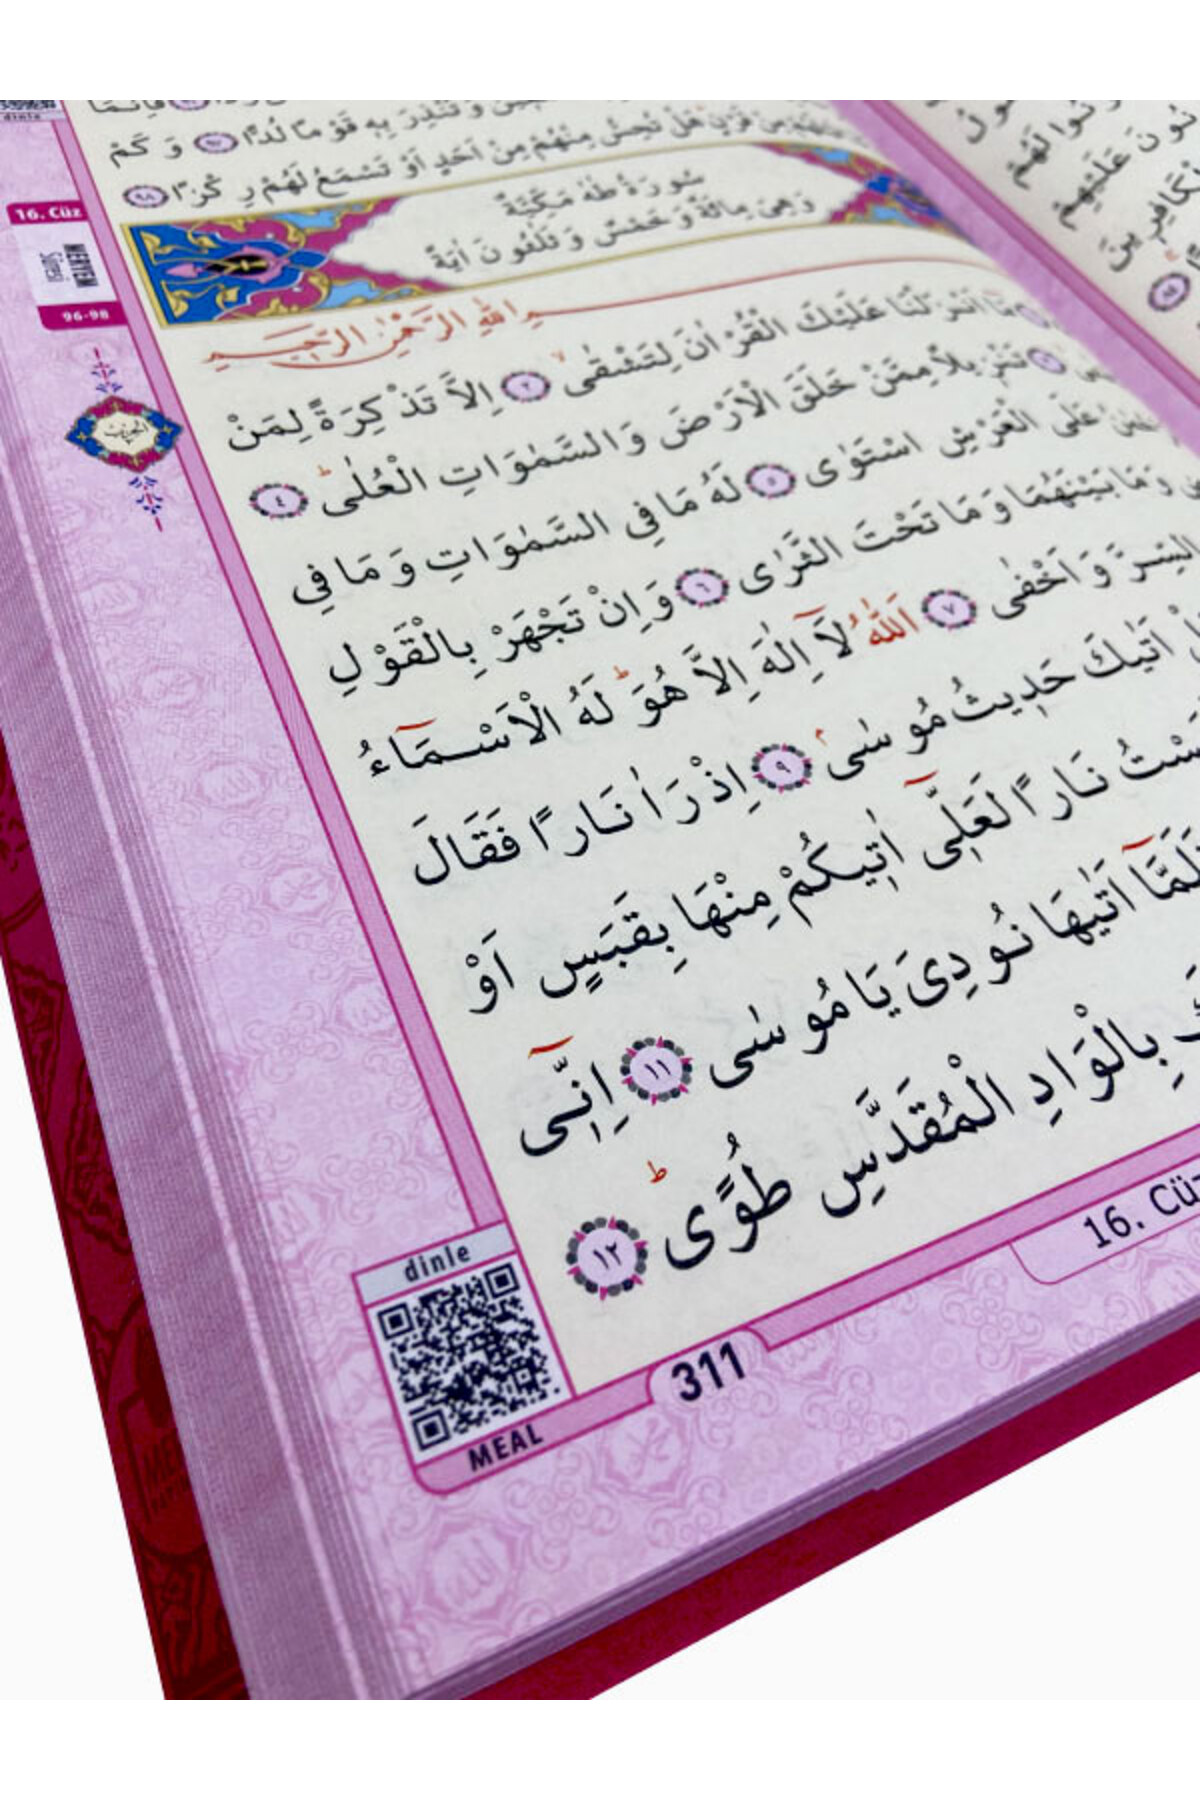 dinle
وَتُنْذِرَ بِهِ قَوْمًا لُدًّا ﴿٩٧﴾ وَكَمْ
مِنْ قَرْنٍ هَلْ تُحِسُّ مِنْهُمْ مِنْ اَحَدٍ اَوْ تَسْمَعُ لَهُمْ رِكْزًا ﴿٩٨﴾
16. Cüz
MERYEM
Sûresi
96-98
سُورَةُ طٰهٰ مَكِّيَّةٌ
وَهِىَ مِائَةٌ وَخَمْسٌ وَثَلٰثُونَ اٰيَةً
اللّٰهِ الرَّحْمٰنِ الرَّحِيمِ
مَٓا اَنْزَلْنَا عَلَيْكَ الْقُرْاٰنَ لِتَشْقٰىۙ ﴿٢﴾ اِلَّا تَذْكِرَةً لِمَنْ
تَنْزِيلًا مِمَّنْ خَلَقَ الْاَرْضَ وَالسَّمٰوَاتِ الْعُلٰىۜ ﴿٤﴾
عَلَى الْعَرْشِ اسْتَوٰى ﴿٥﴾ لَهُ مَا فِى السَّمٰوَاتِ وَمَا فِى
وَمَا بَيْنَهُمَا وَمَا تَحْتَ الثَّرٰى ﴿٦﴾ وَاِنْ تَجْهَرْ بِالْقَوْلِ
السِّرَّ وَاَخْفٰى ﴿٧﴾ اَللّٰهُ لَٓا اِلٰهَ اِلَّا هُوَۜ لَهُ الْاَسْمَٓاءُ
اَتٰيكَ حَدِيثُ مُوسٰىۢ ﴿٩﴾ اِذْ رَاٰ نَارًا فَقَالَ
نَارًا لَعَلِّٓى اٰتِيكُمْ مِنْهَا بِقَبَسٍ اَوْ
اَتٰيهَا نُودِىَ يَا مُوسٰى ﴿١١﴾ اِنِّٓى
بِالْوَادِ الْمُقَدَّسِ طُوًىۜ ﴿١٢﴾
16. Cüz
dinle
MEAL
311